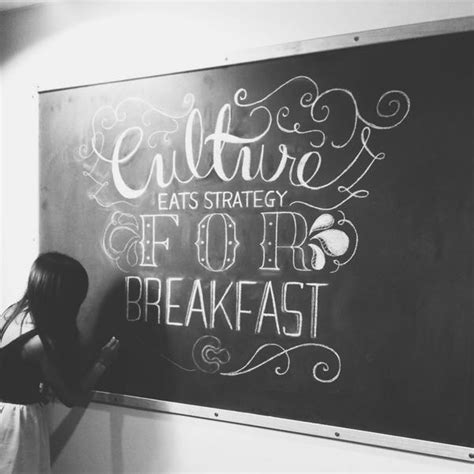 Culture
EATS STRATEGY
FOR
BREAKFAST